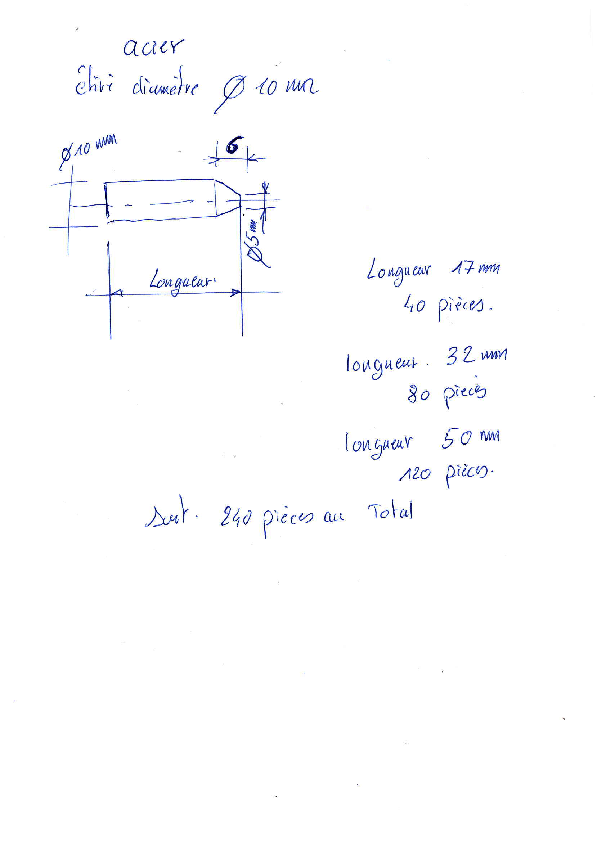 acier
étiré diamètre Ø 10 mm
Ø 10 mm
6
Ø 5 m
Longueur.
Longueur 17 mm
40 pièces.
longueur. 32 mm
80 pieces
longueur 50 mm
120 pièces.
Soit. 240 pièces au Total